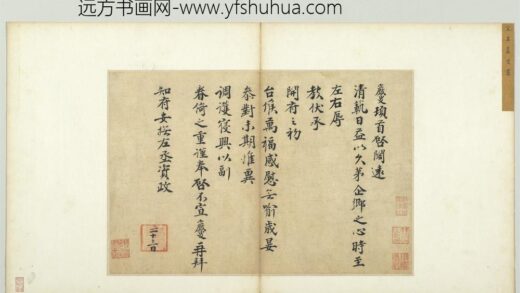 远方书画网-www.yfshuhua.com
夔頓首啓闊遠
清執日益以久第企鄉之心時至
左右辱
教伏承
開府之初
台候萬福感慰無喻歲晏
參對未期惟冀
調護寢興以副
眷倚之重謹奉啓不宣夔再拜
知府安撫左丞資政
二十三日